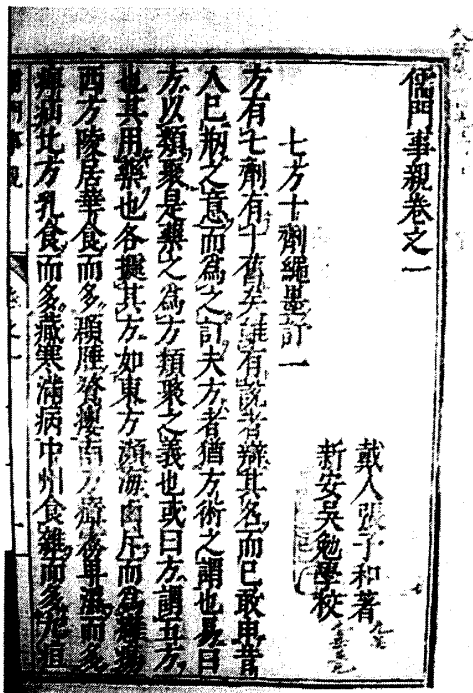 儒門事親卷之一
戴人張子和著
新安吳勉學校
七方十劑繩墨訂一
方有七劑有十舊矣雖有說者辯其名而已敢申昔
人已創之意而爲之訂夫方者猶方術之謂也易曰
方以類聚是藥之爲方類聚之義也或曰方謂五方
也其用藥也各據其方如東方瀕海鹵斥而爲癰瘍
西方陵居華食而多頞腄贅癭南方瘴霧卑濕而多
痹疝北方乳食而多藏寒滿病中州食雜而多九疸